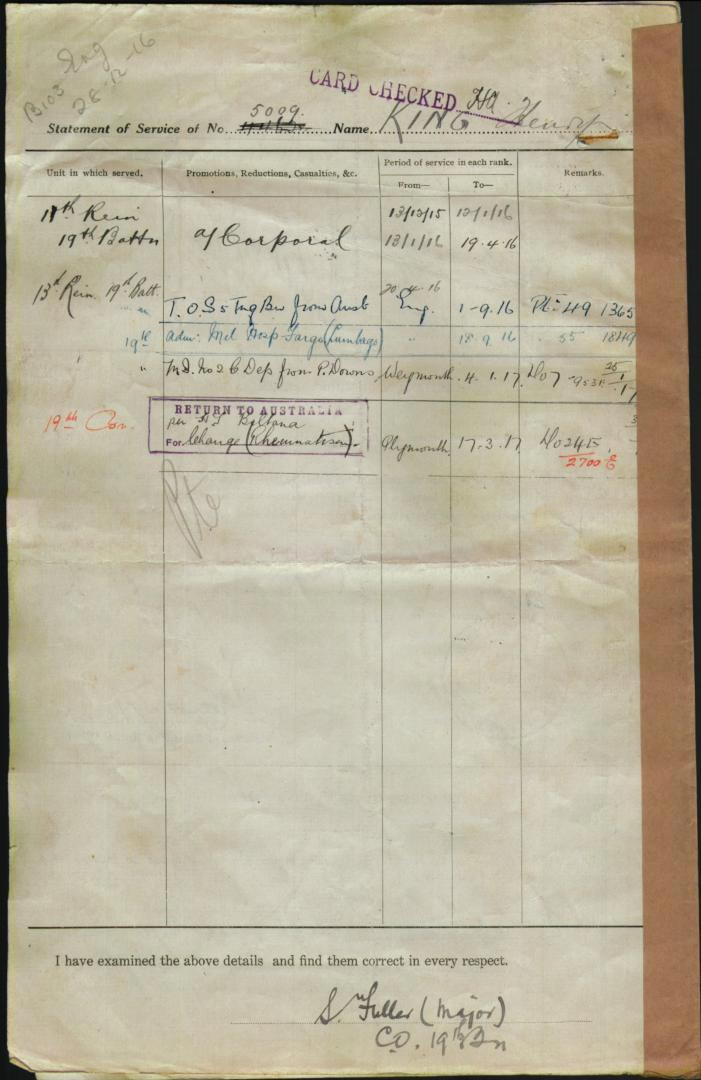 B103 Eng
28-12-16
CARD CHECKED
5009.
Statement of Service of No. Name KING Henry
Unit in which served. Promotions, Reductions, Casualties, &c. Period of service in each rank. Remarks.
From— To—
11th Rein 13/12/15 12/1/16
19th Battn a/Corporal 13/1/16 19.4.16
20.4.16
13th Rein 19th Batt.
" T.O.S 5 Tng Bn from Aust Eng. 1-9.16 Pt 49 1365
19th adm. Mil Hosp Fargo (Lumbago) " 18 9 16 " 55 1849
" M.D. No 2 C Dep from P. Downs Weymouth 4.1.17
RETURN TO AUSTRALIA
19th Con. per H T Beltana
For Change (Rheumatism)- Plymouth 17-3.17
2700
Pte
I have examined the above details and find them correct in every respect.
Fuller (Major)
C.O. 19th Bn